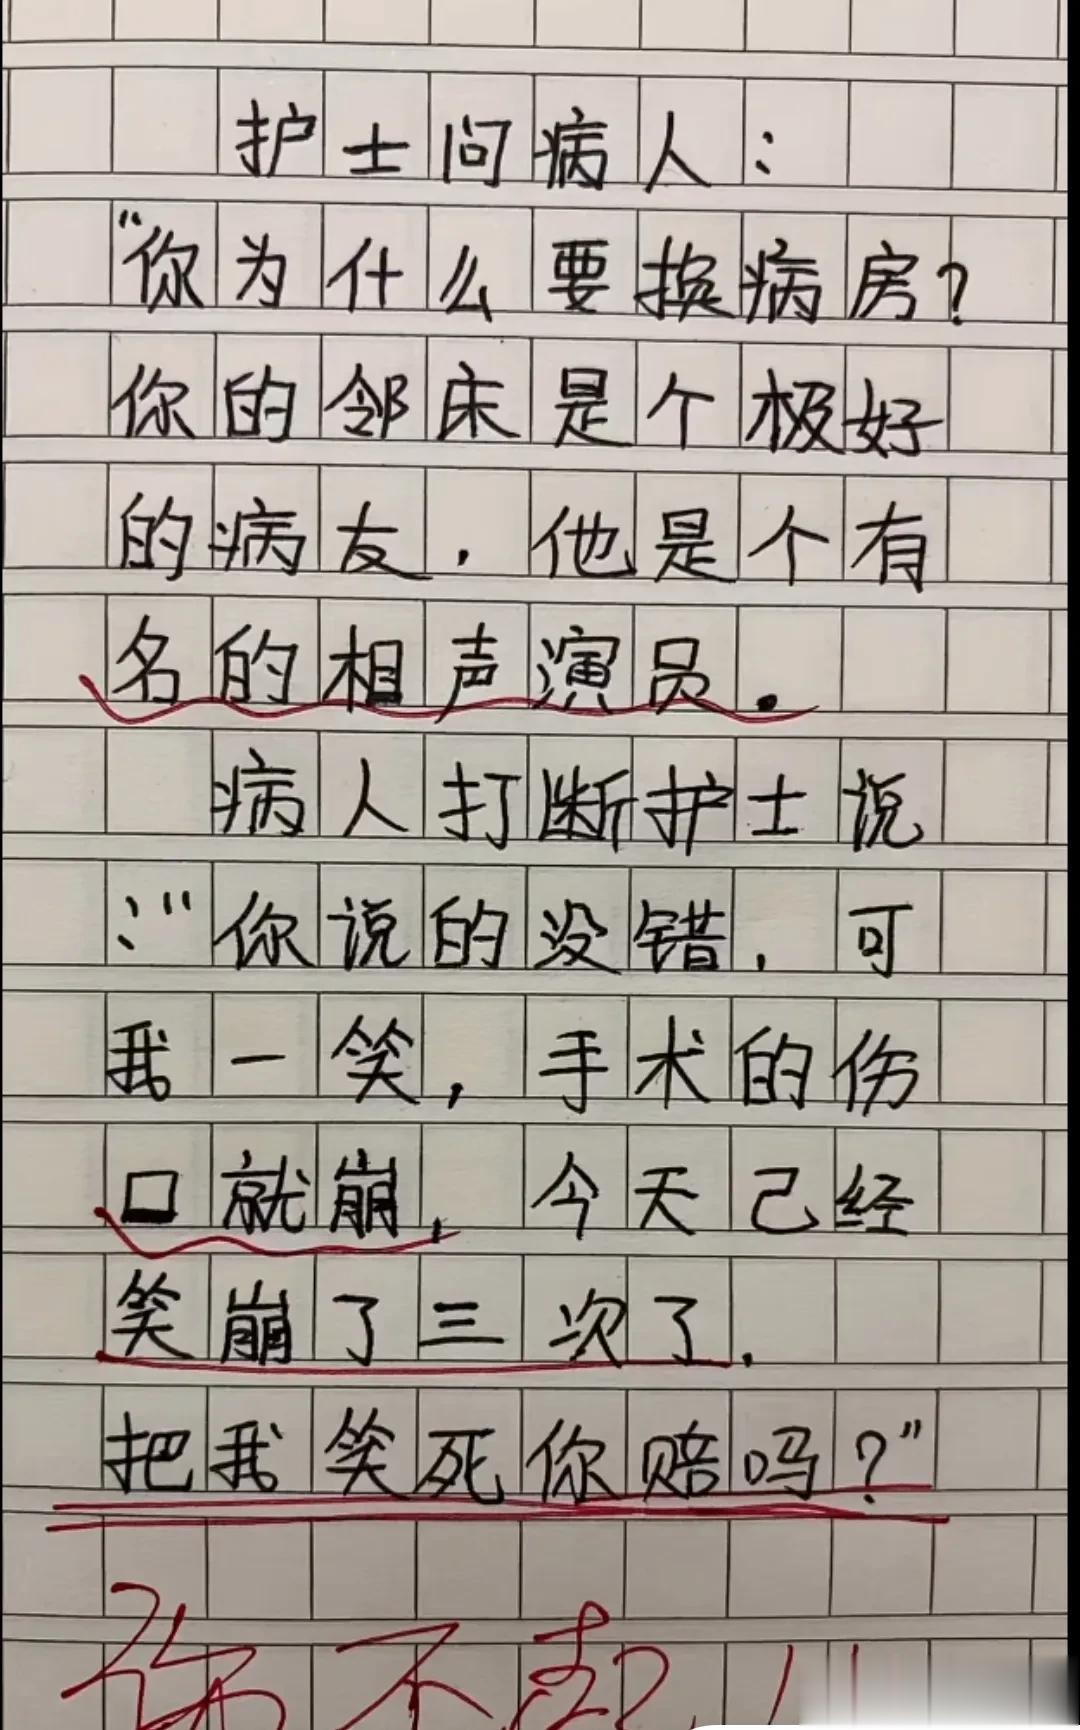 护士问病人：
“你为什么要换病房？
你的邻床是个极好
的病友，他是个有
名的相声演员.
病人打断护士说
：“你说的没错，可
我一笑，手术的伤
口就崩，今天己经
笑崩了三次了.
把我笑死你赔吗？”
伤不起！！